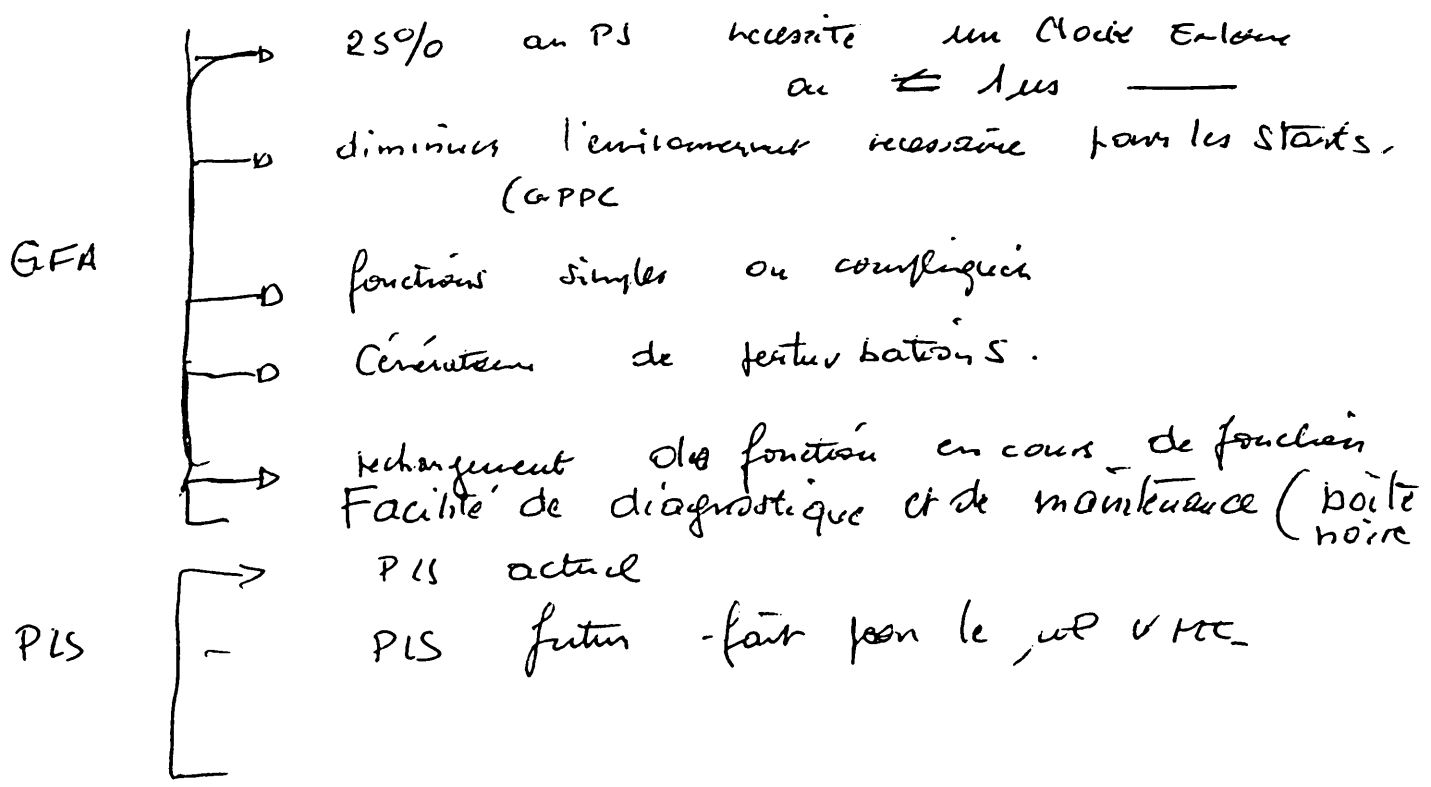 25% au PS nécessite un Clock Externe
ou 1 µs
diminuer l'environnement nécessaire pour les starts.
(CAPPC
GFA
fonctions simples ou compliquées
Générateur de perturbations.
rechargement de fonction en cours de fonction
Facilité de diagnostique et de maintenance (boîte
noire
PLS actuel
PLS
PLS futur - fait par le µP VME